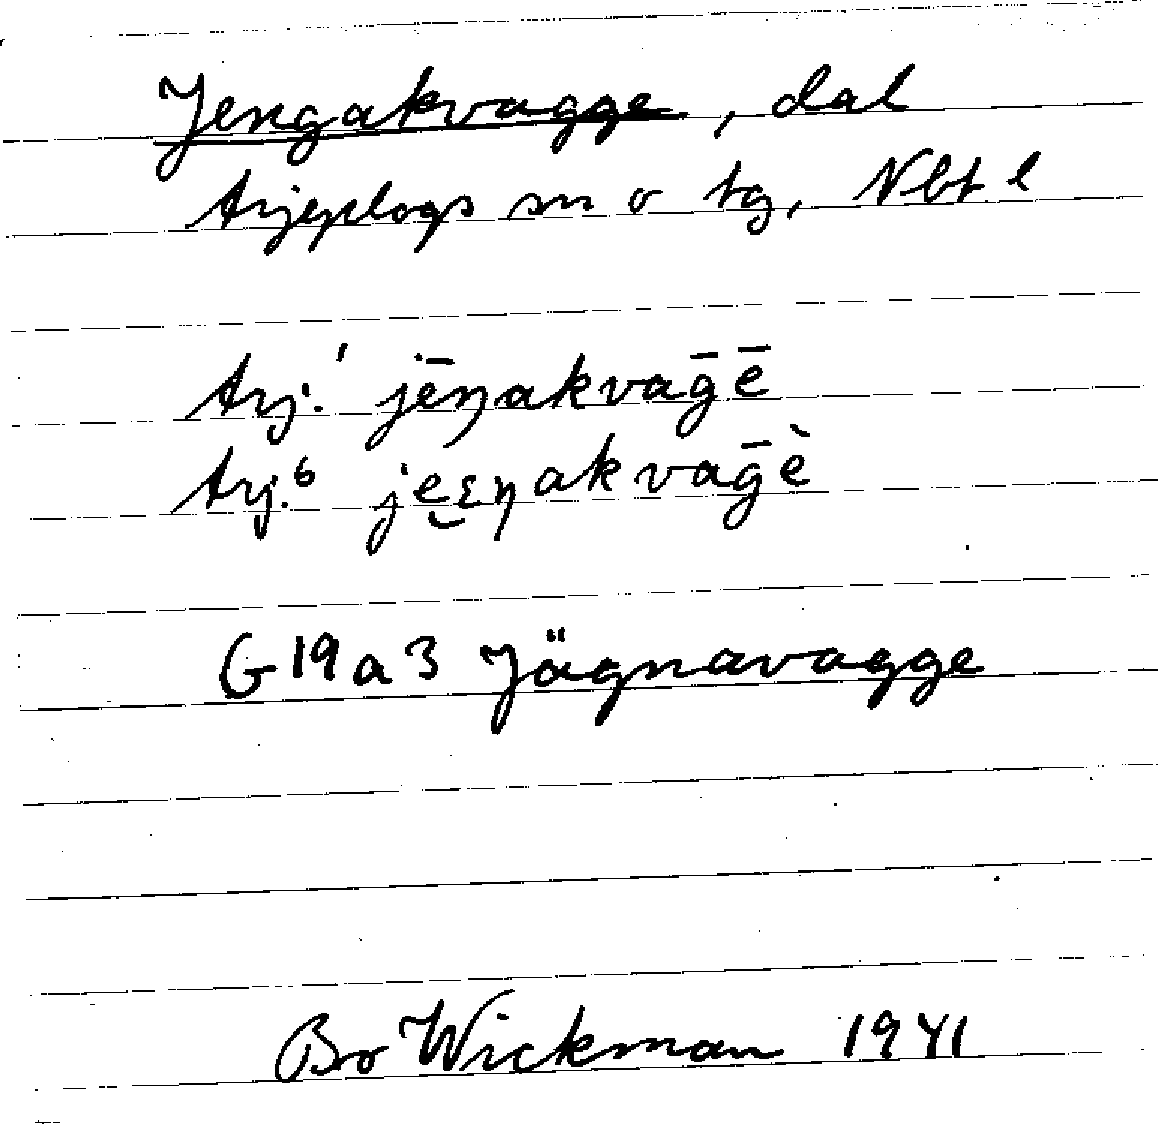 Jengakvagge, dal
Arjeplogs sn o tg, Nbt l
Arj.¹ jēŋakvaḡē
Arj.⁶ je̮ɛŋakvaḡè
G19a3 Jägnavagge
Bo Wickman 1941